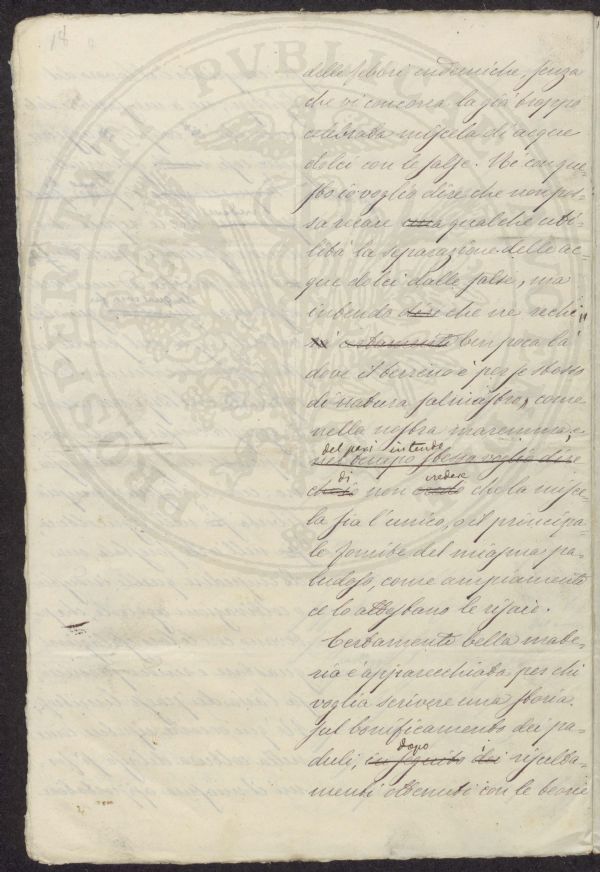 18
delle febbri endemiche, senza
che vi concorra la già troppo
celebrata miscela di acque
dolci con le salse. Ne con que-
sto io voglio dire che non pos-
sa recare una qualche uti-
lità la separazione delle ac-
que dolci dalle salse, ma
intendo dire che ne rechi
certamente ben poca là
dove il terreno è per se stesso
di natura salmastro, come
nella nostra maremma, e
del pari intendo
nel tempo stesso voglio dire
di credere
ch'io non credo che la misce-
la sia l'unico, o il principa-
le fomite del miasma pa-
ludoso, come ampiamente
ce lo attestano le risaie.
Certamente bella mate-
ria è apparecchiata per chi
voglia scrivere una storia
sul bonificamento dei pa-
duli, 
dopo
in seguito dei risulta-
menti ottenuti con le teorie
PROSPERITATI PVBLICAE